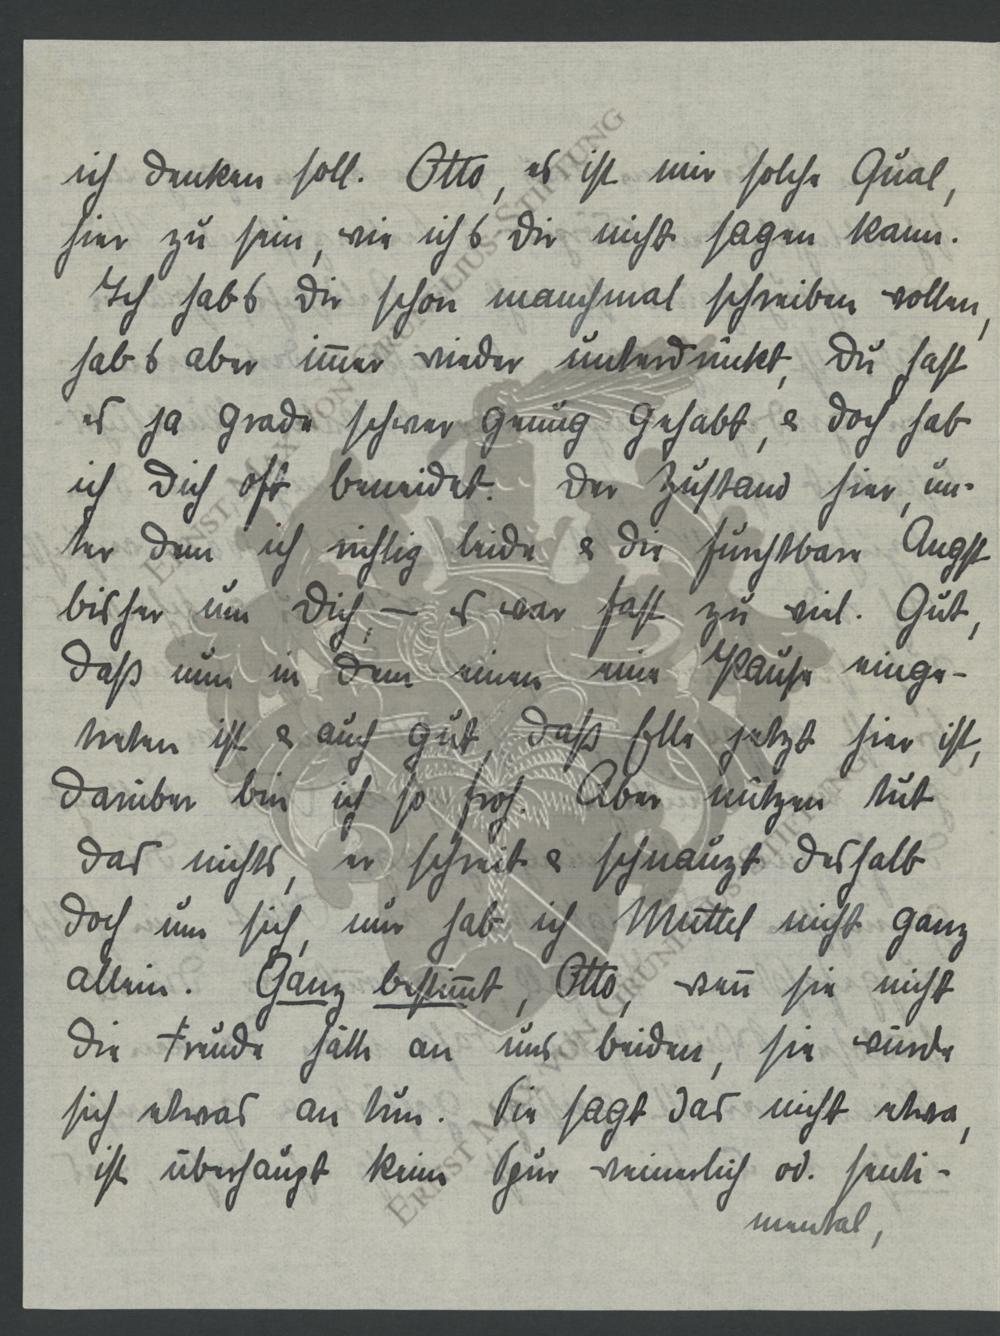 ich denken soll. Otto, es ist mir solche Qual,
hier zu sein, wie ichs Dir nicht sagen kann.
Ich habs Dir schon manchmal schreiben wollen,
habs aber im̅er wieder unterdrückt, Du hast
es ja grade schwer genug gehabt, & doch hab
ich Dich oft beneidet. Der Zustand hier, un-
ter dem ich richtig leide & die furchtbare Angst
bisher um Dich, – es war fast zu viel. Gut,
daß nun in dem einen eine Pause einge-
treten ist & auch gut, daß Elle jetzt hier ist,
darüber bin ich so froh. Aber nützen tut
das nichts, er schreit & schnauzt deshalb
doch um sich, nur hab ich Muttel nicht ganz
allein. Ganz bestim̅t, Otto, wen̅ sie nicht
die Freude hätte an uns beiden, sie würde
sich etwas an tun. Sie sagt das nicht etwa,
ist überhaupt keine Spur weinerlich od. senti-
mental,
ERNST MAX VON GRUNELIUS-STIFTUNG
ERNST MAX VON GRUNELIUS-STIFTUNG